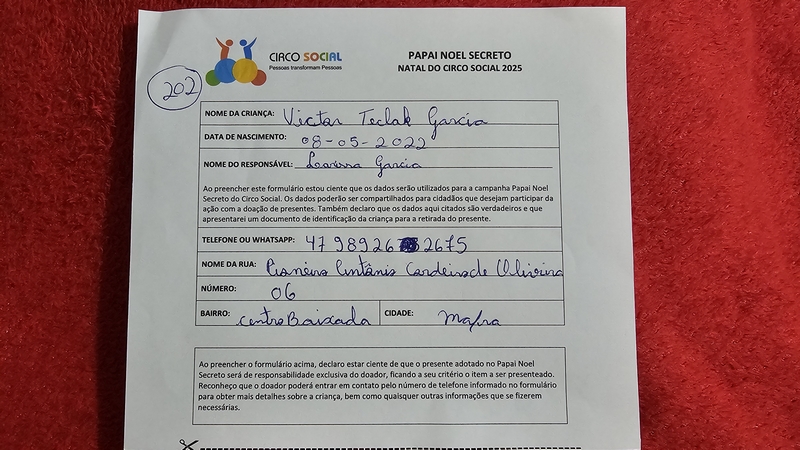 CIRCO SOCIAL
Pessoas transformam Pessoas
PAPAI NOEL SECRETO
NATAL DO CIRCO SOCIAL 2025
202
NOME DA CRIANÇA: Victor Teclak Garcia
DATA DE NASCIMENTO: 08-05-2022
NOME DO RESPONSÁVEL: Larissa Garcia
Ao preencher este formulário estou ciente que os dados serão utilizados para a campanha Papai Noel
Secreto do Circo Social. Os dados poderão ser compartilhados para cidadãos que desejam participar da
ação com a doação de presentes. Também declaro que os dados aqui citados são verdadeiros e que
apresentarei um documento de identificação da criança para a retirada do presente.
TELEFONE OU WHATSAPP: 47 98926 2675
NOME DA RUA: Antônio Cordeiro de Oliveira
NÚMERO: 06
BAIRRO: centro Baixada CIDADE: Mafra
Ao preencher o formulário acima, declaro estar ciente de que o presente adotado no Papai Noel
Secreto será de responsabilidade exclusiva do doador, ficando a seu critério o item a ser presenteado.
Reconheço que o doador poderá entrar em contato pelo número de telefone informado no formulário
para obter mais detalhes sobre a criança, bem como quaisquer outras informações que se fizerem
necessárias.